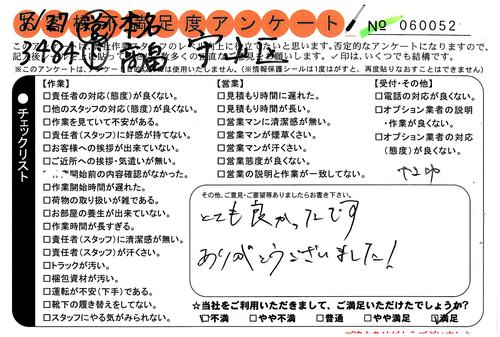 満足度アンケート
№ 060052
●チェックリスト
【作業】
□責任者の対応(態度)が良くない。
□他のスタッフの対応(態度)が良くない。
□作業を見ていて不安がある。
□責任者(スタッフ)に好感が持てない。
□お客様への挨拶が出来ていない。
□ご近所への挨拶・気遣いが無い。
開始前の内容確認がなかった。
□作業開始時間が遅れた。
□荷物の取り扱いが雑である。
□お部屋の養生が出来ていない。
□作業時間が長すぎる。
□責任者(スタッフ)に清潔感が無い。
□責任者(スタッフ)が汗くさい。
□トラックが汚い。
□梱包資材が汚い。
□運転が不安(下手)である。
□靴下の履き替えをしてない。
□スタッフにやる気がみられない。
【営業】
□見積もり時間に遅れた。
□見積もり時間が長い。
□営業マンに清潔感が無い。
□営業マンが煙草くさい。
□営業マンが汗くさい。
□営業態度が良くない。
□営業の説明と作業が一致してない。
【受付・その他】
□電話の対応が良くない。
□オプション業者の説明
・作業が良くない。
□オプション業者の対応
(態度)が良くない。
その他、ご意見・ご要望等ありましたらお書き下さい。
とても良かったです
ありがとうございました!
☆当社をご利用いただきまして、ご満足いただけたでしょうか?
□不満 □やや不満 □普通 □やや満足 □満足